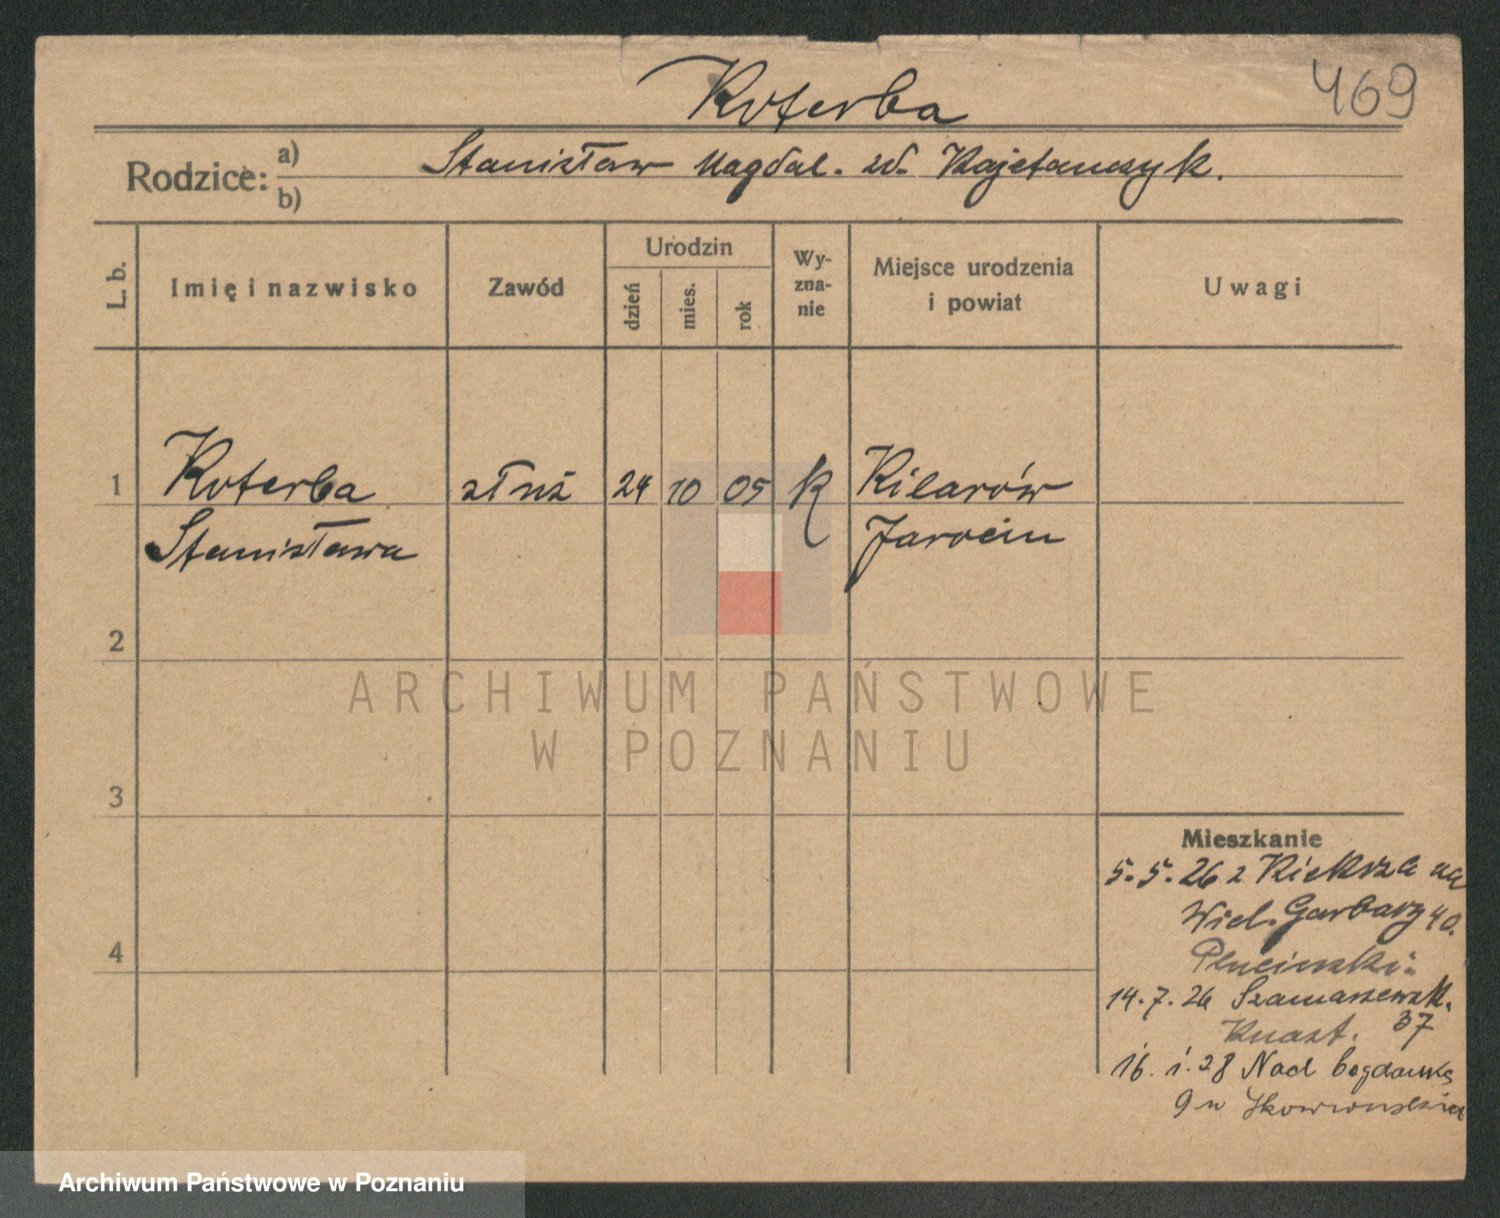 469
Koterba
Rodzice: a) b)
Stanisław Magdal. zd. Kajetanczyk.
L. b.
Imię i nazwisko
Zawód
Urodzin
dzień
mies.
rok
Wy-
zna-
nie
Miejsce urodzenia
i powiat
Uwagi
1 Koterba służ 24 10 05 k Kilarów
Stanisława Jarocin
2
3
4
Mieszkanie
5.5.26 z Kiekrza na
Wiel. Garbary 40.
14.7.26 Szamarzewsk.
37
16.1.28 Nad bogdanką
9
ARCHIWUM PAŃSTWOWE
W POZNANIU
Archiwum Państwowe w Poznaniu